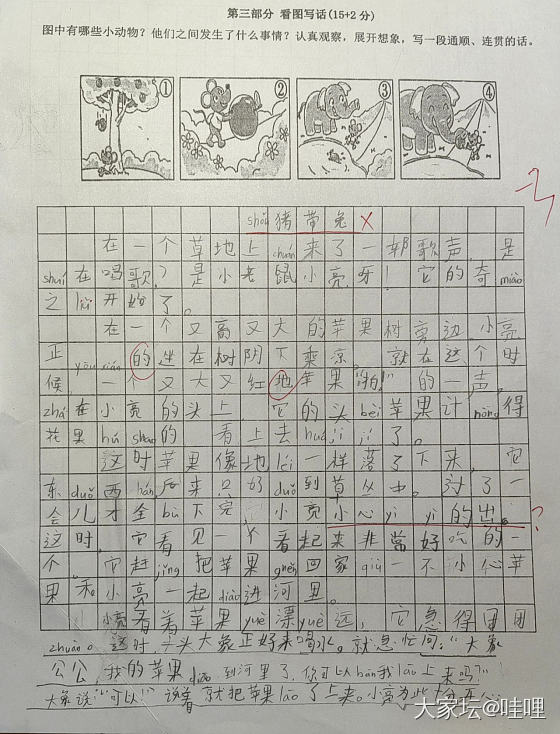 第三部分 看图写话(15+2 分)
图中有哪些小动物？他们之间发生了什么事情？认真观察，展开想象，写一段通顺、连贯的话。
① ② ③ ④
shǒu 猪带兔
在一个草地上 chuán 来了一 歌声，是
shuí 在唱歌？是小老鼠小亮呀！它的奇 miào
之 lǚ 开始了。
在一个又高又大的苹果树旁边，小亮
正 yōu xián 的坐在树阴下乘凉，就在这个时
候，一个又大又红地苹果“啪”的一声，
zhá 在小亮的头上，它的头 bèi 苹果 nòng 得
花果 hú shào 的 看上去 huá jī jí 了。
这时苹果像地 léi 一样落了下来，它
东 duǒ 西 后来只好 duǒ 到草丛中。过了一
会儿才全 bù 下完，小亮小心 yì yì 的出。
这时，它看见一个看起来非常好吃的一
个。它赶 jǐng 把苹果 回家 一不小心苹
果和小亮一起 diào 进河里。
小亮看着苹果 yuè 漂 yuè 远，它急得团团
zhuàn。这时，一头大象正好来喝水。就急忙问：“大象
公公，我的苹果 diào 到河里了，你可以 bān 我 lāo 上来吗？”
大象说：“可以”说着就把苹果 lāo 了上来。小亮为此十分开心
?
大家坛@哇哩